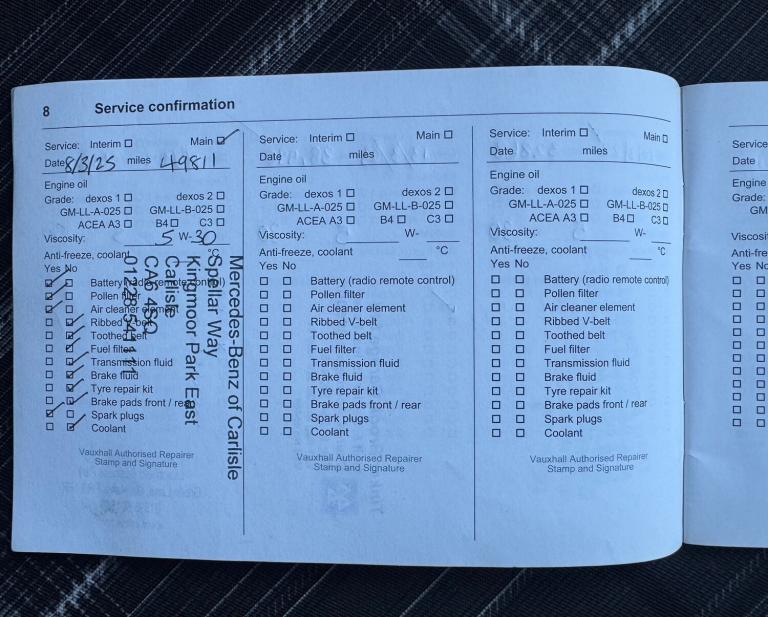 8 Service confirmation
Service: Interim ☐ Main ☑
Date 8/3/25 miles 49811
Engine oil
Grade: dexos 1 ☐ dexos 2 ☐
GM-LL-A-025 ☐ GM-LL-B-025 ☐
ACEA A3 ☐ B4 ☐ C3 ☐
Viscosity: 5 W-30
Anti-freeze, coolant °C
Yes No
Battery (radio remote control)
Pollen filter
Air cleaner element
Ribbed V-belt
Toothed belt
Fuel filter
Transmission fluid
Brake fluid
Tyre repair kit
Brake pads front / rear
Spark plugs
Coolant
Vauxhall Authorised Repairer
Stamp and Signature
Mercedes-Benz of Carlisle
Spellar Way
Kingmoor Park East
Carlisle
01228 541111
Service: Interim ☐ Main ☐
Date miles
Engine oil
Grade: dexos 1 ☐ dexos 2 ☐
GM-LL-A-025 ☐ GM-LL-B-025 ☐
ACEA A3 ☐ B4 ☐ C3 ☐
Viscosity: W-
Anti-freeze, coolant °C
Yes No
Battery (radio remote control)
Pollen filter
Air cleaner element
Ribbed V-belt
Toothed belt
Fuel filter
Transmission fluid
Brake fluid
Tyre repair kit
Brake pads front / rear
Spark plugs
Coolant
Vauxhall Authorised Repairer
Stamp and Signature
Service: Interim ☐ Main ☐
Date miles
Engine oil
Grade: dexos 1 ☐ dexos 2 ☐
GM-LL-A-025 ☐ GM-LL-B-025 ☐
ACEA A3 ☐ B4 ☐ C3 ☐
Viscosity: W-
Anti-freeze, coolant °C
Yes No
Battery (radio remote control)
Pollen filter
Air cleaner element
Ribbed V-belt
Toothed belt
Fuel filter
Transmission fluid
Brake fluid
Tyre repair kit
Brake pads front / rear
Spark plugs
Coolant
Vauxhall Authorised Repairer
Stamp and Signature
Service
Date
Engine
Grade:
GM
Yes No